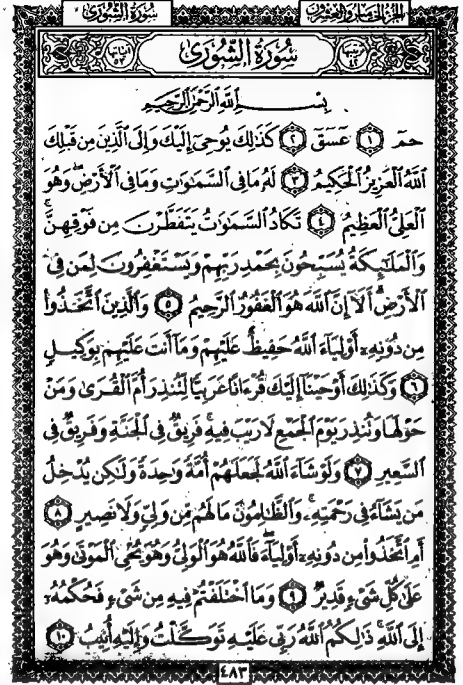 سُورَةُ الشُّورَىٰ الجزء الخامس والعشرون
ترتيبها ٤٢ سُورَةُ الشُّورَىٰ آياتها ٥٣
بِسْمِ اللَّهِ الرَّحْمَٰنِ الرَّحِيمِ
حمٓ ١ عٓسٓقٓ ٢ كَذَٰلِكَ يُوحِىٓ إِلَيْكَ وَإِلَى الَّذِينَ مِن قَبْلِكَ
اللَّهُ الْعَزِيزُ الْحَكِيمُ ٣ لَهُۥ مَا فِى السَّمَٰوَٰتِ وَمَا فِى الْأَرْضِ ۖ وَهُوَ
الْعَلِىُّ الْعَظِيمُ ٤ تَكَادُ السَّمَٰوَٰتُ يَتَفَطَّرْنَ مِن فَوْقِهِنَّ ۚ
وَالْمَلَٰٓئِكَةُ يُسَبِّحُونَ بِحَمْدِ رَبِّهِمْ وَيَسْتَغْفِرُونَ لِمَن فِى
الْأَرْضِ ۗ أَلَآ إِنَّ اللَّهَ هُوَ الْغَفُورُ الرَّحِيمُ ٥ وَالَّذِينَ اتَّخَذُوا۟
مِن دُونِهِۦٓ أَوْلِيَآءَ اللَّهُ حَفِيظٌ عَلَيْهِمْ وَمَآ أَنتَ عَلَيْهِم بِوَكِيلٍ
٦ وَكَذَٰلِكَ أَوْحَيْنَآ إِلَيْكَ قُرْءَانًا عَرَبِيًّا لِّتُنذِرَ أُمَّ الْقُرَىٰ وَمَنْ
حَوْلَهَا وَتُنذِرَ يَوْمَ الْجَمْعِ لَا رَيْبَ فِيهِ ۚ فَرِيقٌ فِى الْجَنَّةِ وَفَرِيقٌ فِى
السَّعِيرِ ٧ وَلَوْ شَآءَ اللَّهُ لَجَعَلَهُمْ أُمَّةً وَٰحِدَةً وَلَٰكِن يُدْخِلُ
مَن يَشَآءُ فِى رَحْمَتِهِۦ ۚ وَالظَّٰلِمُونَ مَا لَهُم مِّن وَلِىٍّ وَلَا نَصِيرٍ ٨
أَمِ اتَّخَذُوا۟ مِن دُونِهِۦٓ أَوْلِيَآءَ ۖ فَاللَّهُ هُوَ الْوَلِىُّ وَهُوَ يُحْىِ الْمَوْتَىٰ وَهُوَ
عَلَىٰ كُلِّ شَىْءٍ قَدِيرٌ ٩ وَمَا اخْتَلَفْتُمْ فِيهِ مِن شَىْءٍ فَحُكْمُهُۥٓ
إِلَى اللَّهِ ۚ ذَٰلِكُمُ اللَّهُ رَبِّى عَلَيْهِ تَوَكَّلْتُ وَإِلَيْهِ أُنِيبُ ١٠
٤٨٣